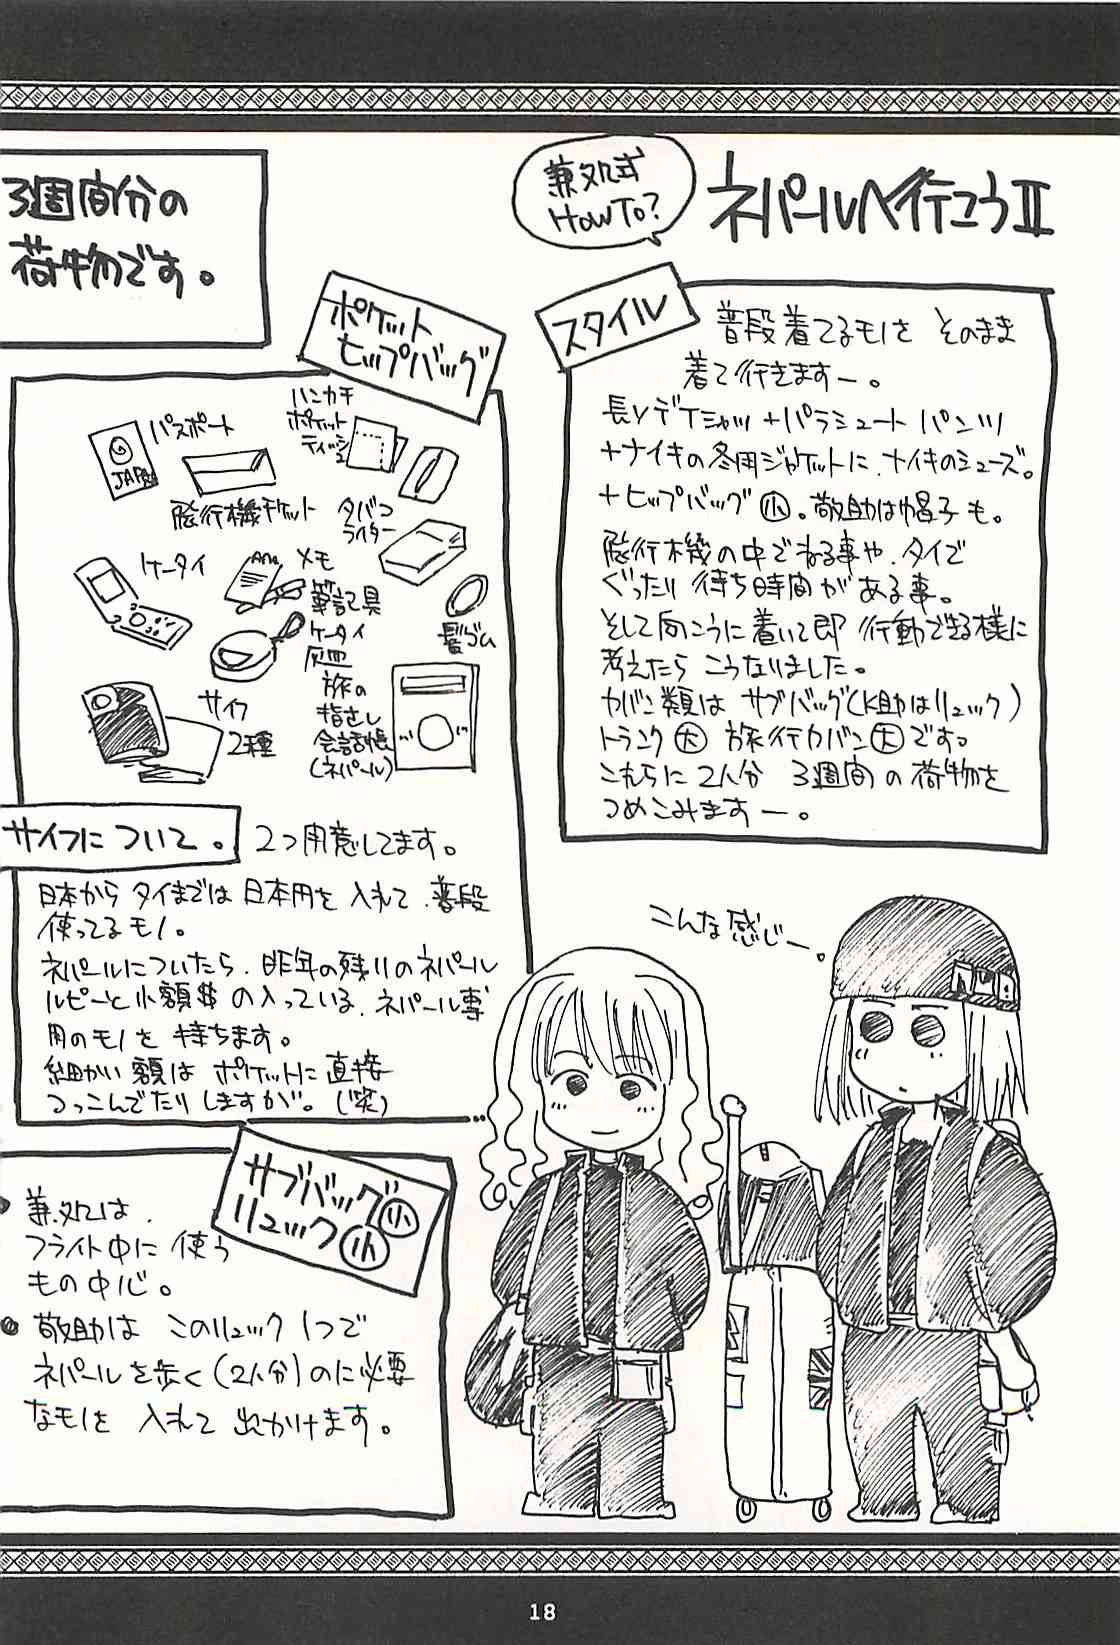 ネパールへ行こうII
兼処式
HOWTO?
スタイル
普段着てるモノを そのまま
着て行きますー。
長ソデTシャツ+パラシュート パンツ
+ナイキの冬用ジャケットに、ナイキのシューズ。
+ヒップバッグ小。敬助は帽子も。
飛行機の中でねる事や、タイで
ぐったり 待ち時間がある事。
そして向こうに着いて即 行動できる様に
考えたら こうなりました。
カバン類は サブバッグ(K助はリュック)
トランク大 旅行カバン大です。
これらに 2人分 3週間の荷物を
つめこみますー。
こんな感じー。
3週間分の
荷物です。
ポケット
ヒップバッグ
パスポート
JAPA
飛行機チケット
ハンカチ
ポケット
ティッシュ
タバコ
ライター
ケータイ
メモ
筆記具
髪ゴム
ケータイ
灰皿
サイフ
2種
旅の
指さし
会話帳
(ネパール)
サイフについて。
2つ用意してます。
日本から タイまでは 日本円を 入れて、普段
使ってるモノ。
ネパールについたら、昨年の残りのネパール
ルピーと小額$の入っている、ネパール専
用のモノを 持ちます。
細かい額は ポケットに直接
つっこんでたりしますが。(笑)
サブバッグ小
リュック小
兼処は、
フライト中に 使う
もの中心。
敬助は このリュック1つで
ネパールを歩く(2人分)のに必要
なモノを 入れて 出かけます。
18